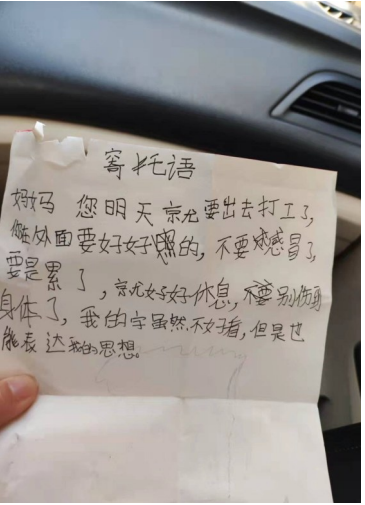 寄托语
妈妈 您明天京尤要出去打工了,
您在外面要好好照的,不要感冒了,
要是累了,京尤好好休息,不要别伤到
身体了,我的字虽然不好看,但是也
能表达我的思想。